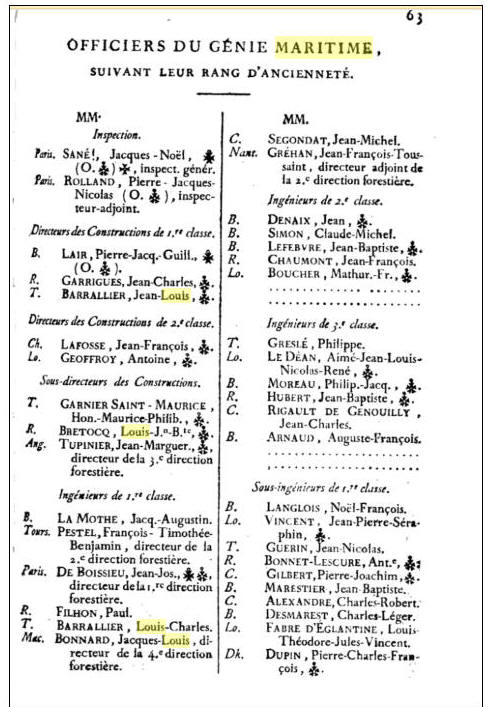 63
OFFICIERS DU GÉNIE MARITIME,
SUIVANT LEUR RANG D'ANCIENNETÉ.
MM.
Inspection.
Paris. SANÉ!, Jacques-Noël,
(O. ) , inspect. génér.
Paris. ROLLAND, Pierre-Jacques-
Nicolas (O. ), inspec-
teur-adjoint.
Directeurs des Constructions de 1.re classe.
B. LAIR, Pierre-Jacq.-Guill.,
(O. ).
R. GARRIGUES, Jean-Charles,
T. BARRALLIER, Jean-Louis,
Directeurs des Constructions de 2.e classe.
Ch. LAFOSSE, Jean-François,
Lo. GEOFFROY, Antoine,
Sous-directeurs des Constructions.
T. GARNIER SAINT-MAURICE,
Hon.-Maurice-Philib.,
R. BRETOCQ, Louis-J.n-B.te,
Ang. TUPINIER, Jean-Marguer.,
directeur de la 3.e direction
forestière.
Ingénieurs de 1.re classe.
B. LA MOTHE, Jacq.-Augustin.
Tours. PESTEL, François-Timothée-
Benjamin, directeur de la
2.e direction forestière.
Paris. DE BOISSIEU, Jean-Jos.,
directeur de la 1.re direction
forestière.
R. FILHON, Paul.
T. BARRALLIER, Louis-Charles.
Mac. BONNARD, Jacques-Louis, di-
recteur de la 4.e direction
forestière.
MM.
C. SEGONDAT, Jean-Michel.
Nant. GRÉHAN, Jean-François-Tous-
saint, directeur adjoint de
la 2.e direction forestière.
Ingénieurs de 2.e classe.
B. DENAIX, Jean,
B. SIMON, Claude-Michel.
B. LEFEBVRE, Jean-Baptiste,
R. CHAUMONT, Jean-François.
Lo. BOUCHER, Mathur.-Fr.,
Ingénieurs de 3.e classe.
T. GRESLÉ, Philippe.
Lo. LE DÉAN, Aimé-Jean-Louis-
Nicolas-René,
B. MOREAU, Philip.-Jacq.,
R. HUBERT, Jean-Baptiste,
C. RIGAULT DE GENOUILLY,
Jean-Charles.
B. ARNAUD, Auguste-François.
Sous-ingénieurs de 1.re classe.
B. LANGLOIS, Noël-François.
Lo. VINCENT, Jean-Pierre-Séra-
phin,
T. GUERIN, Jean-Nicolas.
R. BONNET-LESCURE, Ant.e,
C. GILBERT, Pierre-Joachim,
B. MARESTIER, Jean-Baptiste.
C. ALEXANDRE, Charles-Robert.
B. DESMAREST, Charles-Léger.
Lo. FABRE D'ÉGLANTINE, Louis-
Théodore-Jules-Vincent.
Dk. DUPIN, Pierre-Charles-Fran-
çois,